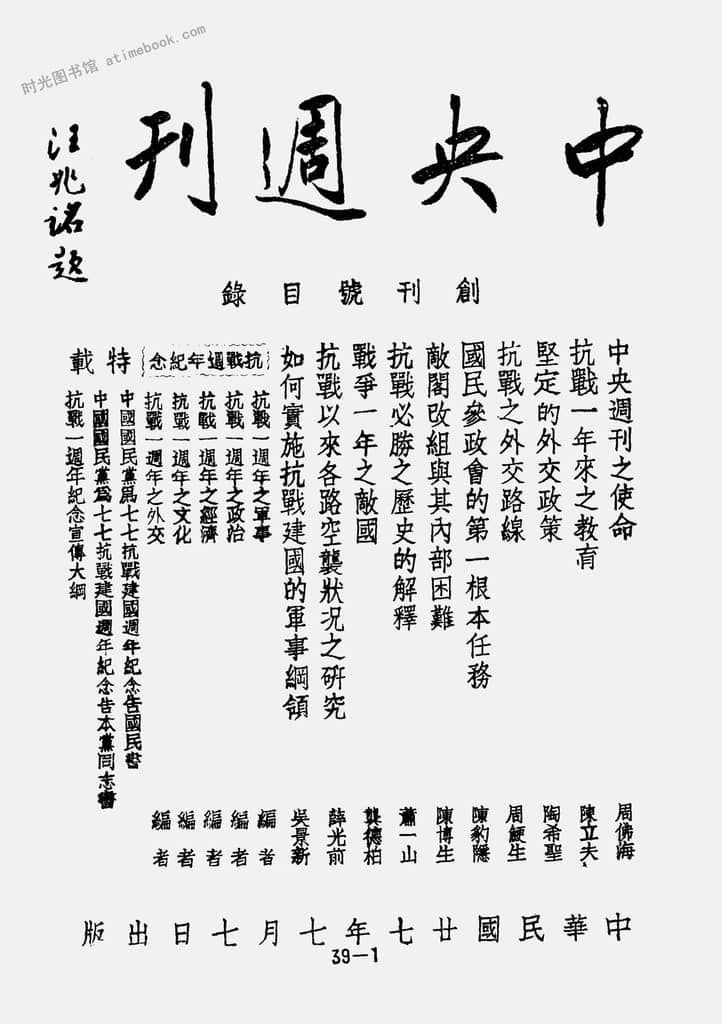 时光图书馆 atimebook.com
中央週刊
汪兆銘題
創刊號目錄
中央週刊之使命 周佛海
抗戰一年來之教育 陳立夫
堅定的外交政策 陶希聖
抗戰之外交路線 周鯁生
國民參政會的第一根本任務 陳豹隱
敵閣改組與其內部困難 陳博生
抗戰必勝之歷史的解釋 蕭一山
戰爭一年之敵國 龔德柏
抗戰以來各路空襲狀況之研究 薛光前
如何實施抗戰建國的軍事綱領 吳景新
抗戰週年紀念
抗戰一週年之軍事 編者
抗戰一週年之政治 編者
抗戰一週年之經濟 編者
抗戰一週年之文化 編者
抗戰一週年之外交 編者
特載
中國國民黨爲七七抗戰建國週年紀念告國民書
中國國民黨爲七七抗戰建國週年紀念告本黨同志書
抗戰一週年紀念宣傳大綱
中華民國廿七年七月七日出版
39—1